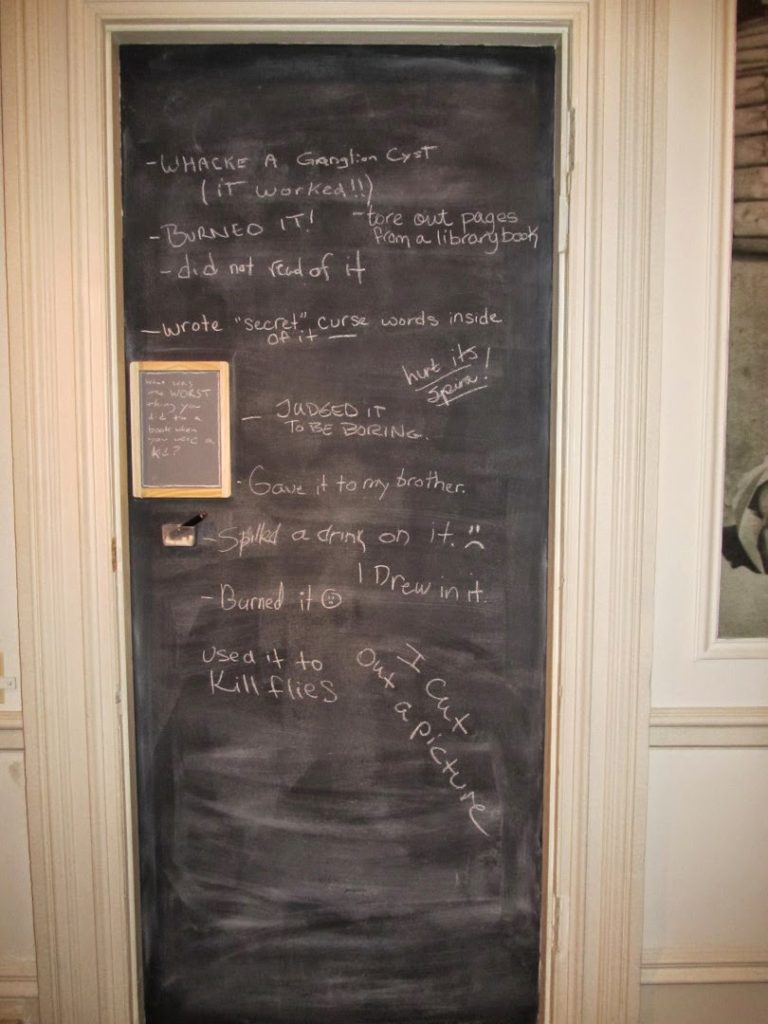 - WHACKE A Ganglion Cyst
(iT worked!!)
- BURNED IT!
- tore out pages
from a library book
- did not read of it
- wrote "secret" curse words inside
of it
hurt its
spine!
What was
the WORST
thing you
did to a
book when
you were a
kid?
- JUDGED IT
TO BE BORING.
- Gave it to my brother.
- Spilled a drink on it. :(
I Drew in it.
- Burned it ☹
used it to
Kill flies
I Cut
Out a picture